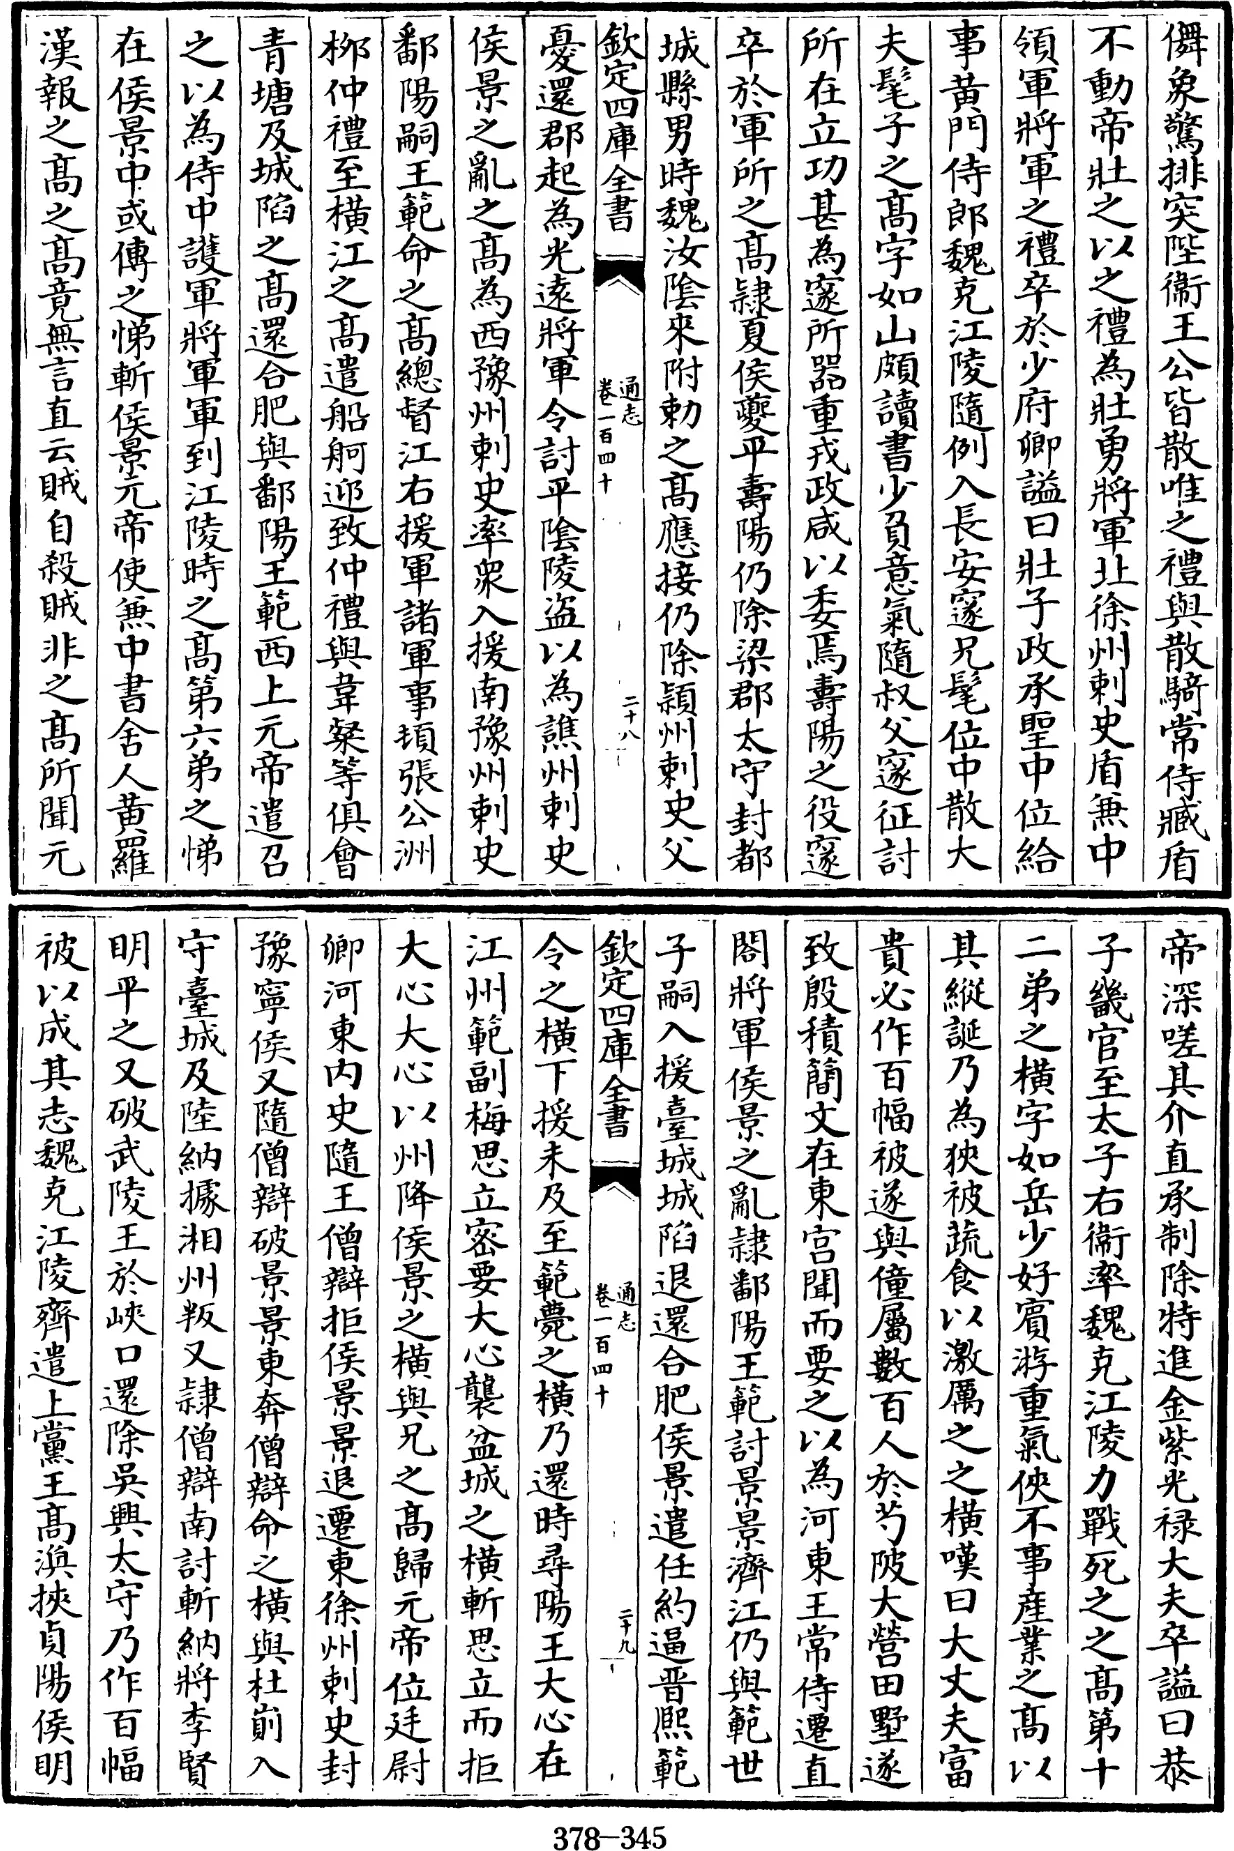 儛象驚排突陛衞王公皆散唯之禮與散騎常侍臧盾
不動帝壯之以之禮為壯勇將軍北徐州刺史盾兼中
領軍將軍之禮卒於少府卿謚曰壯子政承聖中位給
事黄門侍郎魏克江陵隨例入長安邃兄髦位中散大
夫髦子之髙字如山頗讀書少負意氣隨叔父邃征討
所在立功甚為邃所器重戎政咸以委焉壽陽之役邃
卒於軍所之髙隷夏侯夔平壽陽仍除梁郡太守封都
城縣男時魏汝隂來附勅之髙應接仍除潁州刺史父
欽定四庫全書
通志
卷一百四十
二十八
憂還郡起為光逺將軍令討平隂陵盜以為譙州刺史
侯景之亂之髙為西豫州刺史率衆入援南豫州刺史
鄱陽嗣王範命之髙總督江右援軍諸軍事頓張公洲
栁仲禮至横江之髙遣船舸迎致仲禮與韋粲等俱會
青塘及城陷之髙還合肥與鄱陽王範西上元帝遣召
之以為侍中護軍將軍軍到江陵時之髙第六弟之悌
在侯景中或傳之悌斬侯景元帝使兼中書舍人黄羅
漢報之髙之髙竟無言直云賊自殺賊非之髙所聞元
帝深嗟其介直承制除特進金紫光禄大夫卒謚曰恭
子畿官至太子右衞率魏克江陵力戰死之之髙第十
二弟之横字如岳少好賓游重氣俠不事産業之髙以
其縱誕乃為狹被蔬食以激厲之之横嘆曰大丈夫富
貴必作百幅被遂與僮屬數百人於芍陂大營田墅遂
致殷積簡文在東宫聞而要之以為河東王常侍遷直
閤將軍侯景之亂隷鄱陽王範討景景濟江仍與範世
子嗣入援臺城城陷退還合肥侯景遣任約逼晋熈範
欽定四庫全書
通志
卷一百四十
二十九
令之横下援未及至範薨之横乃還時尋陽王大心在
江州範副梅思立密要大心襲盆城之横斬思立而拒
大心大心以州降侯景之横與兄之髙歸元帝位廷尉
卿河東内史隨王僧辯拒侯景景退遷東徐州刺史封
豫寧侯又隨僧辯破景景東奔僧辯命之横與杜崱入
守臺城及陸納據湘州叛又隷僧辯南討斬納將李賢
明平之又破武陵王於峽口還除吳興太守乃作百幅
被以成其志魏克江陵齊遣上黨王髙渙挾貞陽侯明
378-345